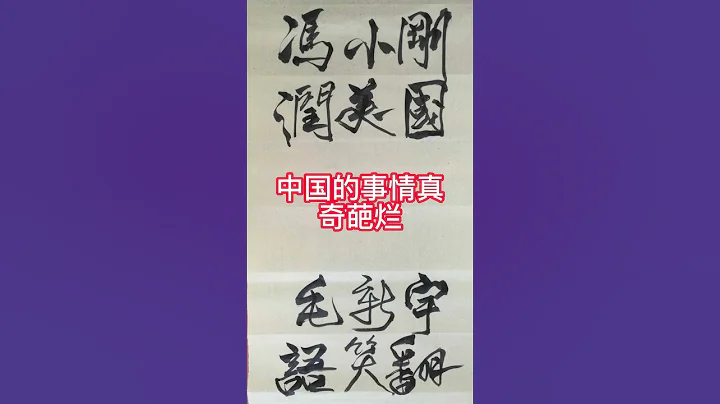 馮小剛
潤美國
中国的事情真
奇葩烂
毛新宇
語笑翻